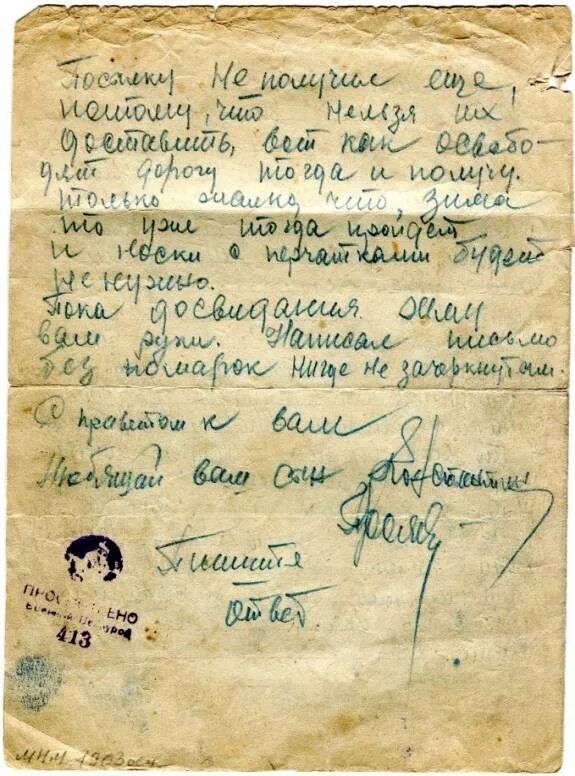 Посялку не получил еще,
потому, что нельзя их
доставить, вот как освобо-
дят дорогу тогда и получу.
только жалко что, зима
то уже тогда пройдет
и носки с перчатками будет
не нужно.
Пока досвидания жму
вам руки. Написал письмо
без помарок нигде не зачеркнутом.
С приветом к вам
Любящай вам сын Константин
Пишите
ответ.
ПРОСМОТРЕНО
Военной Цензурой
413